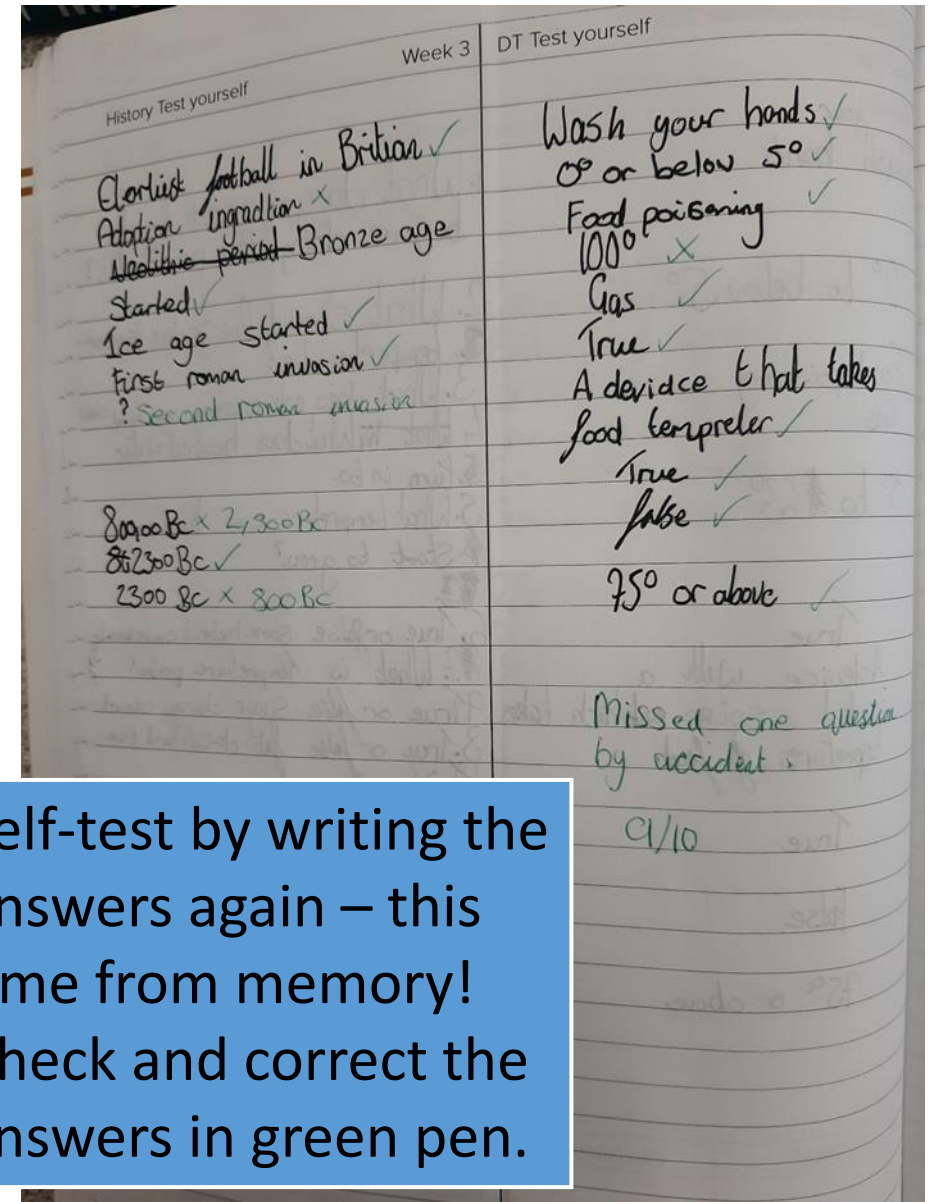 Week 3
DT Test yourself
History Test yourself
football in Britian ✓
Adoption ingradtion ×
Neolithic period Bronze age
Started ✓
Ice age started ✓
First roman invasion ✓
? Second roman invasion
80,000 Bc × 2,300 Bc
2300 Bc ✓
2300 Bc × 800 Bc
Wash your hands ✓
0° or below 5° ✓
Food poisoning ✓
100° ×
Gas ✓
True ✓
A devidce that takes
food tempreler ✓
True ✓
false ✓
75° or above ✓
Missed one question
by accident.
9/10
elf-test by writing the
nswers again – this
me from memory!
heck and correct the
nswers in green pen.